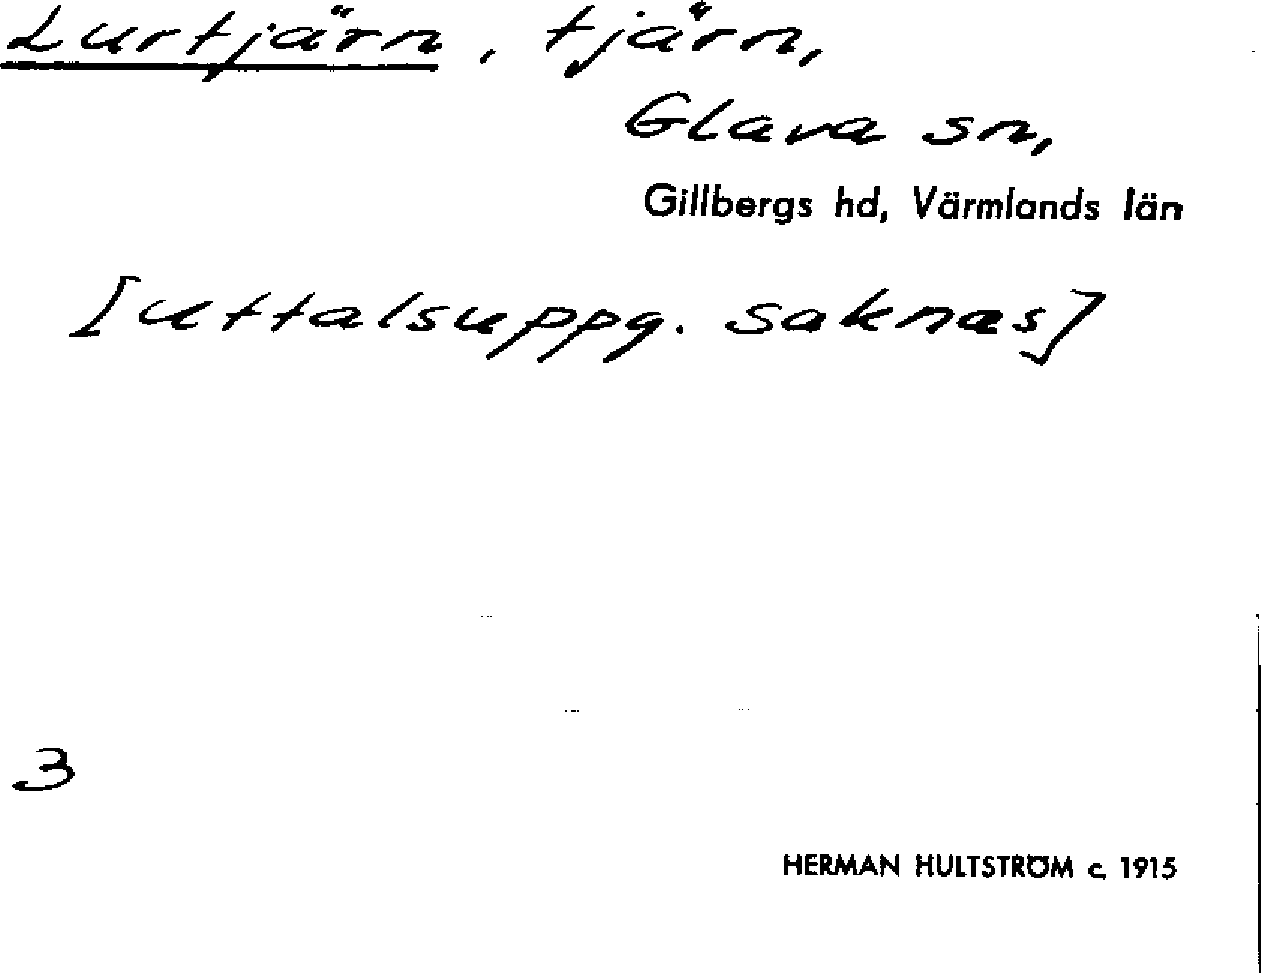 Lurtjärn, tjärn,
Glava sn,
Gillbergs hd, Värmlands län
[uttalsuppg. saknas]
3
HERMAN HULTSTRÖM c. 1915